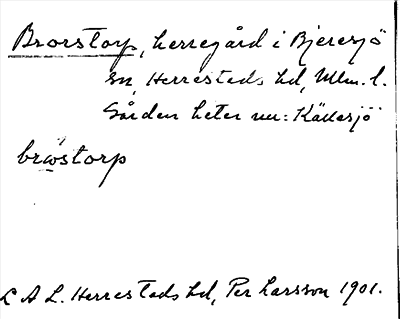 Brorstorp, herregård i Bjeresjö
sn, Herrestads hd, Mlm. l.
Gården heter nu: Källesjö
brωstorp
L A L. Herrestads hd, Per Larsson 1901.